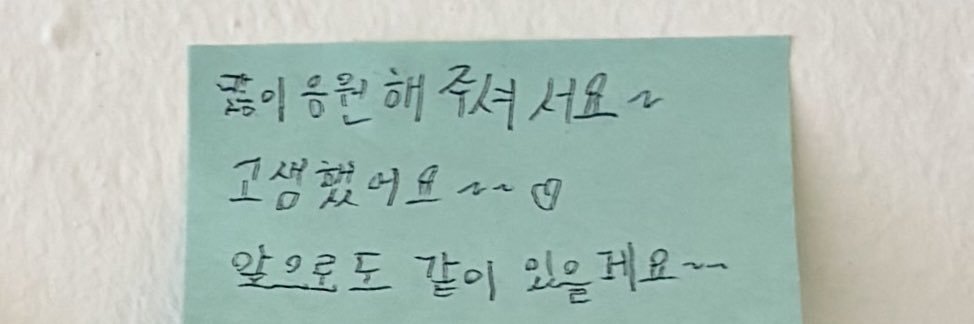 많이 응원해 주셔 서요~
고생했어요~~♡
앞으로도 같이 있을게요~~